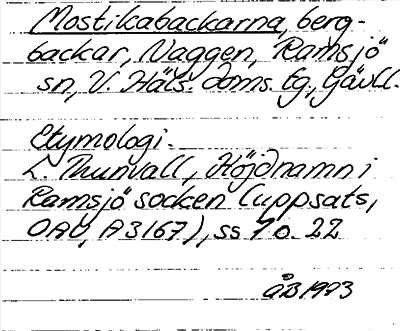 Mostikabackarna, berg-
backar, Naggen, Ramsjö
sn, V. Häls. doms. tg, Gävl.
Etymologi.
L. Thunvall, Höjdnamn i
Ramsjö socken (uppsats,
OAU, A3167), ss 7 o. 22
ÅB 1983